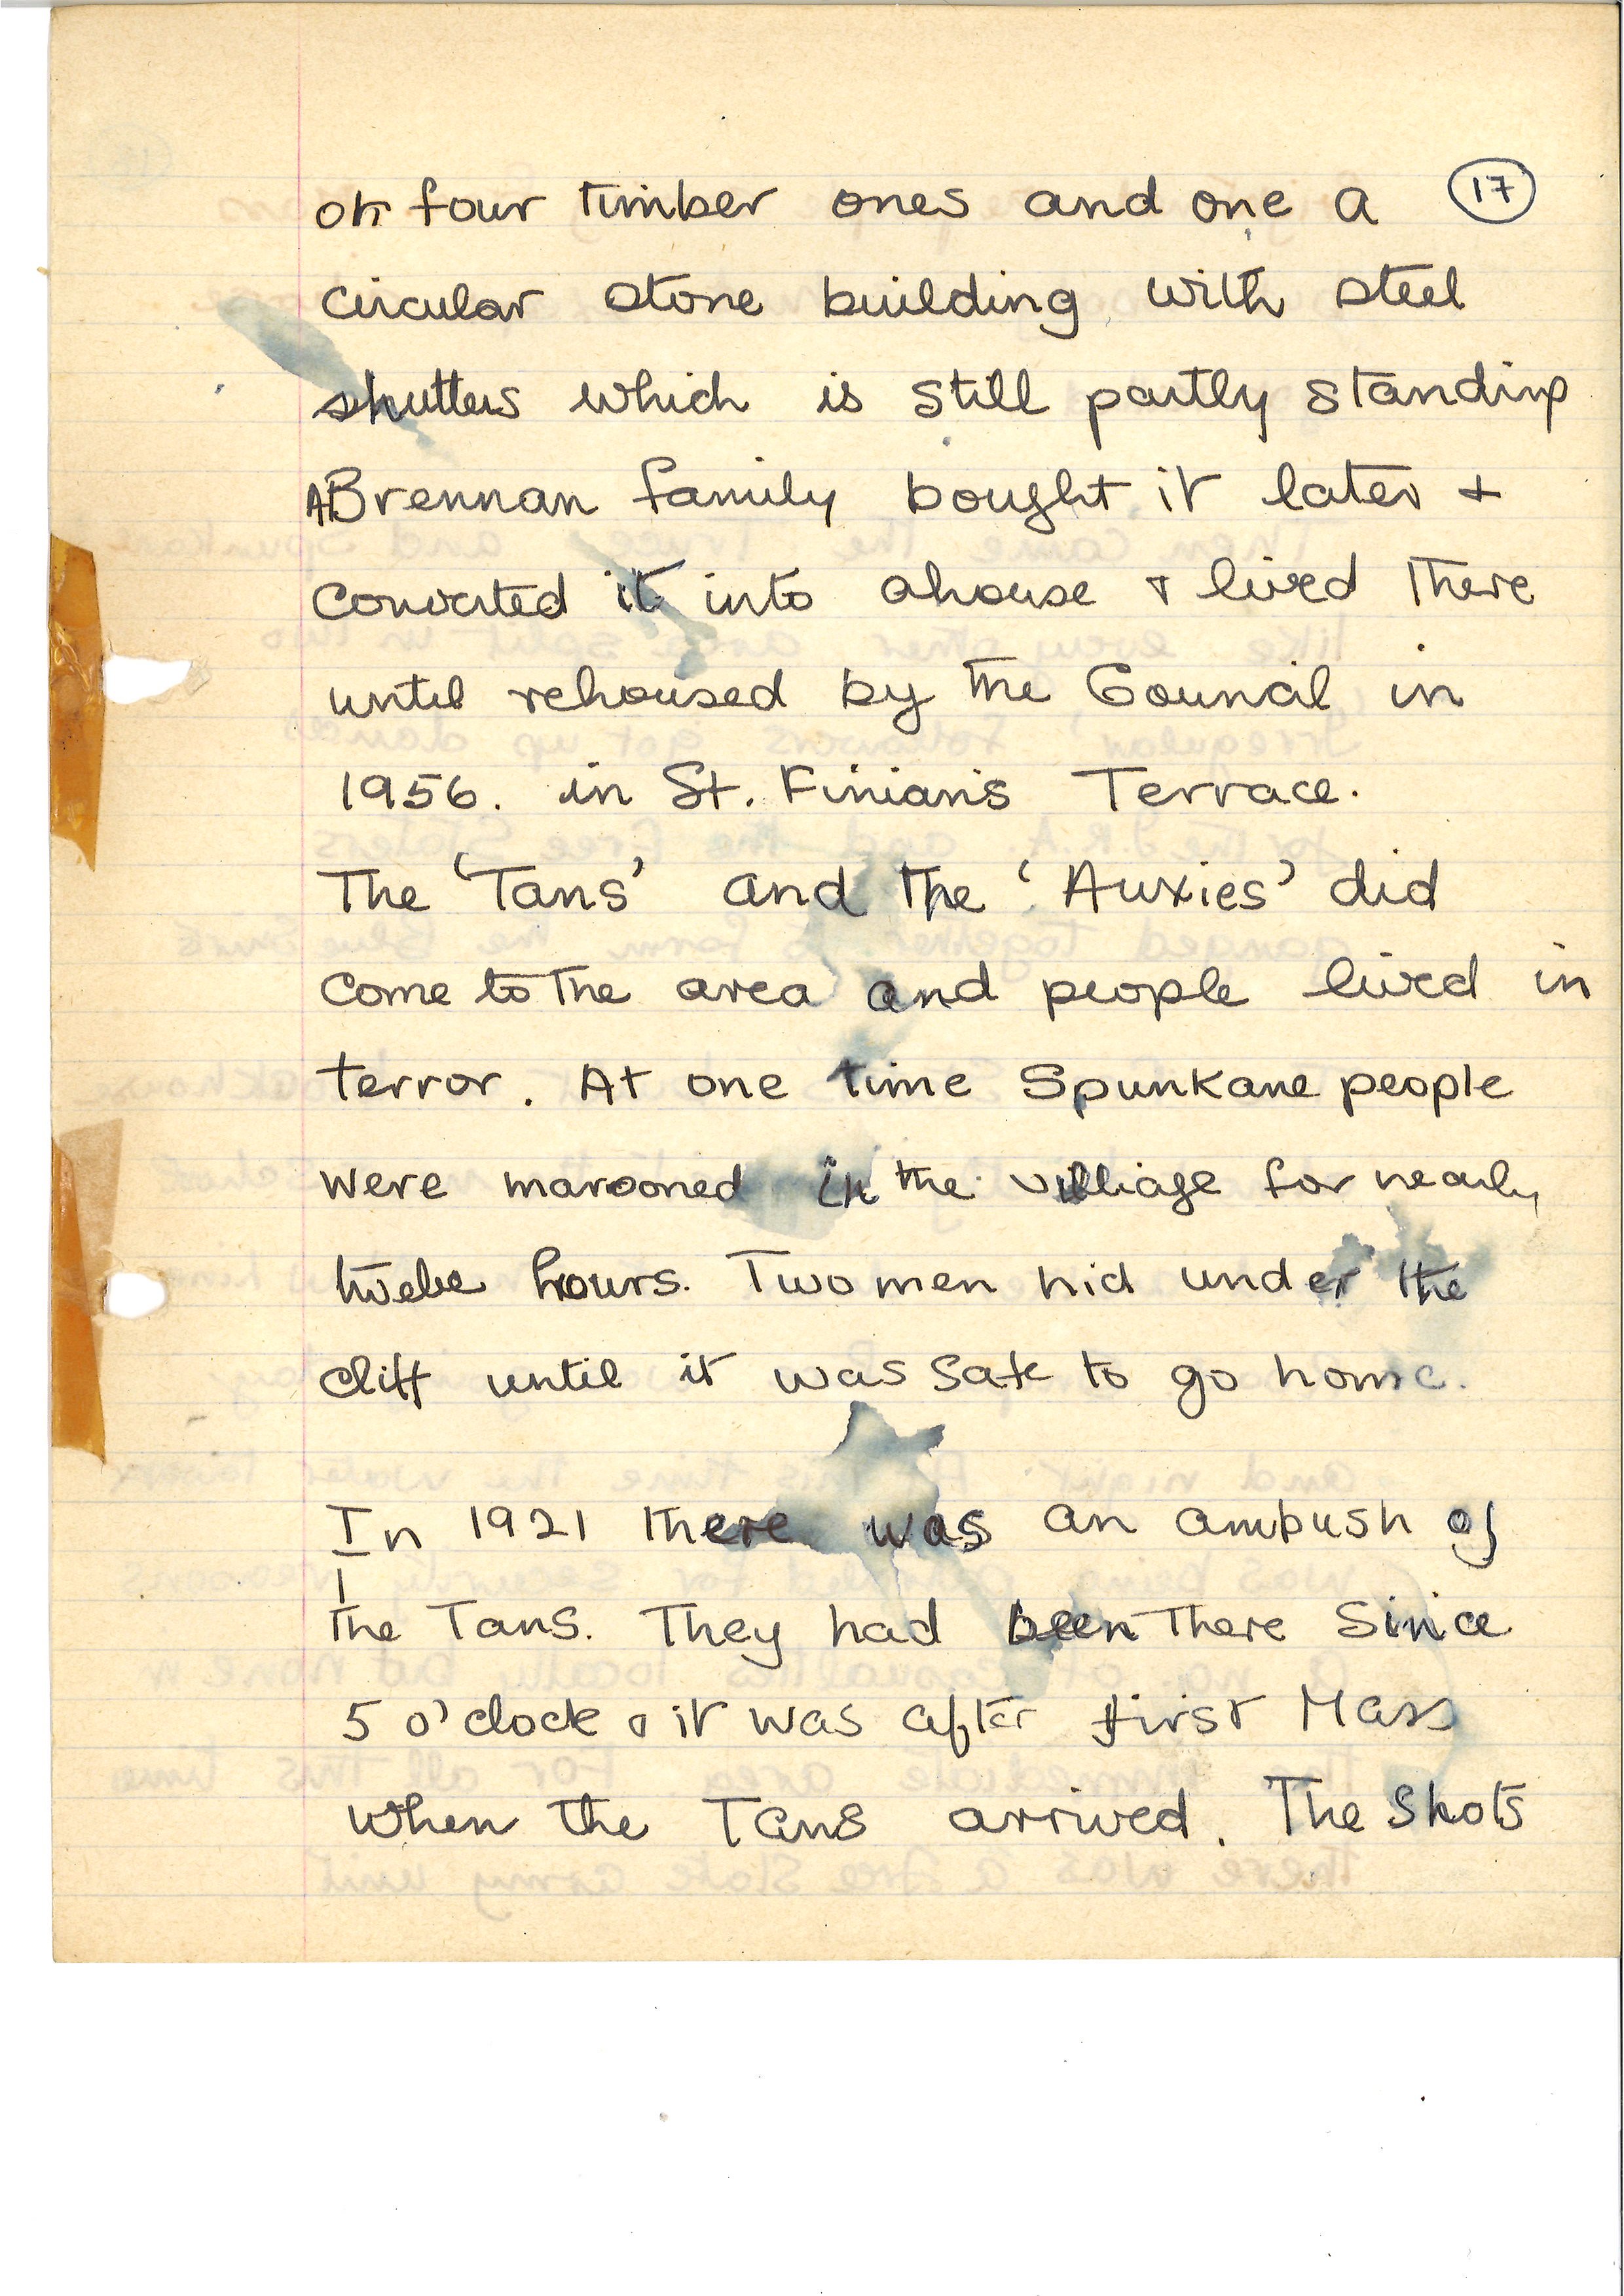 of four timber ones and one a 17
circular stone building with steel
shutters which is still partly standing
A Brennan family bought it later +
converted it into a house + lived there
until rehoused by the Council in
1956. in St. Finian's Terrace.
The 'Tans' and the 'Auxies' did
come to the area and people lived in
terror. At one time Spunkane people
were marooned in the villiage for nearly
twelve hours. Two men hid under the
cliff until it was safe to go home.
In 1921 there was an ambush of
the Tans. They had been there since
5 o'clock & it was after first Mass
when the Tans arrived. The shots